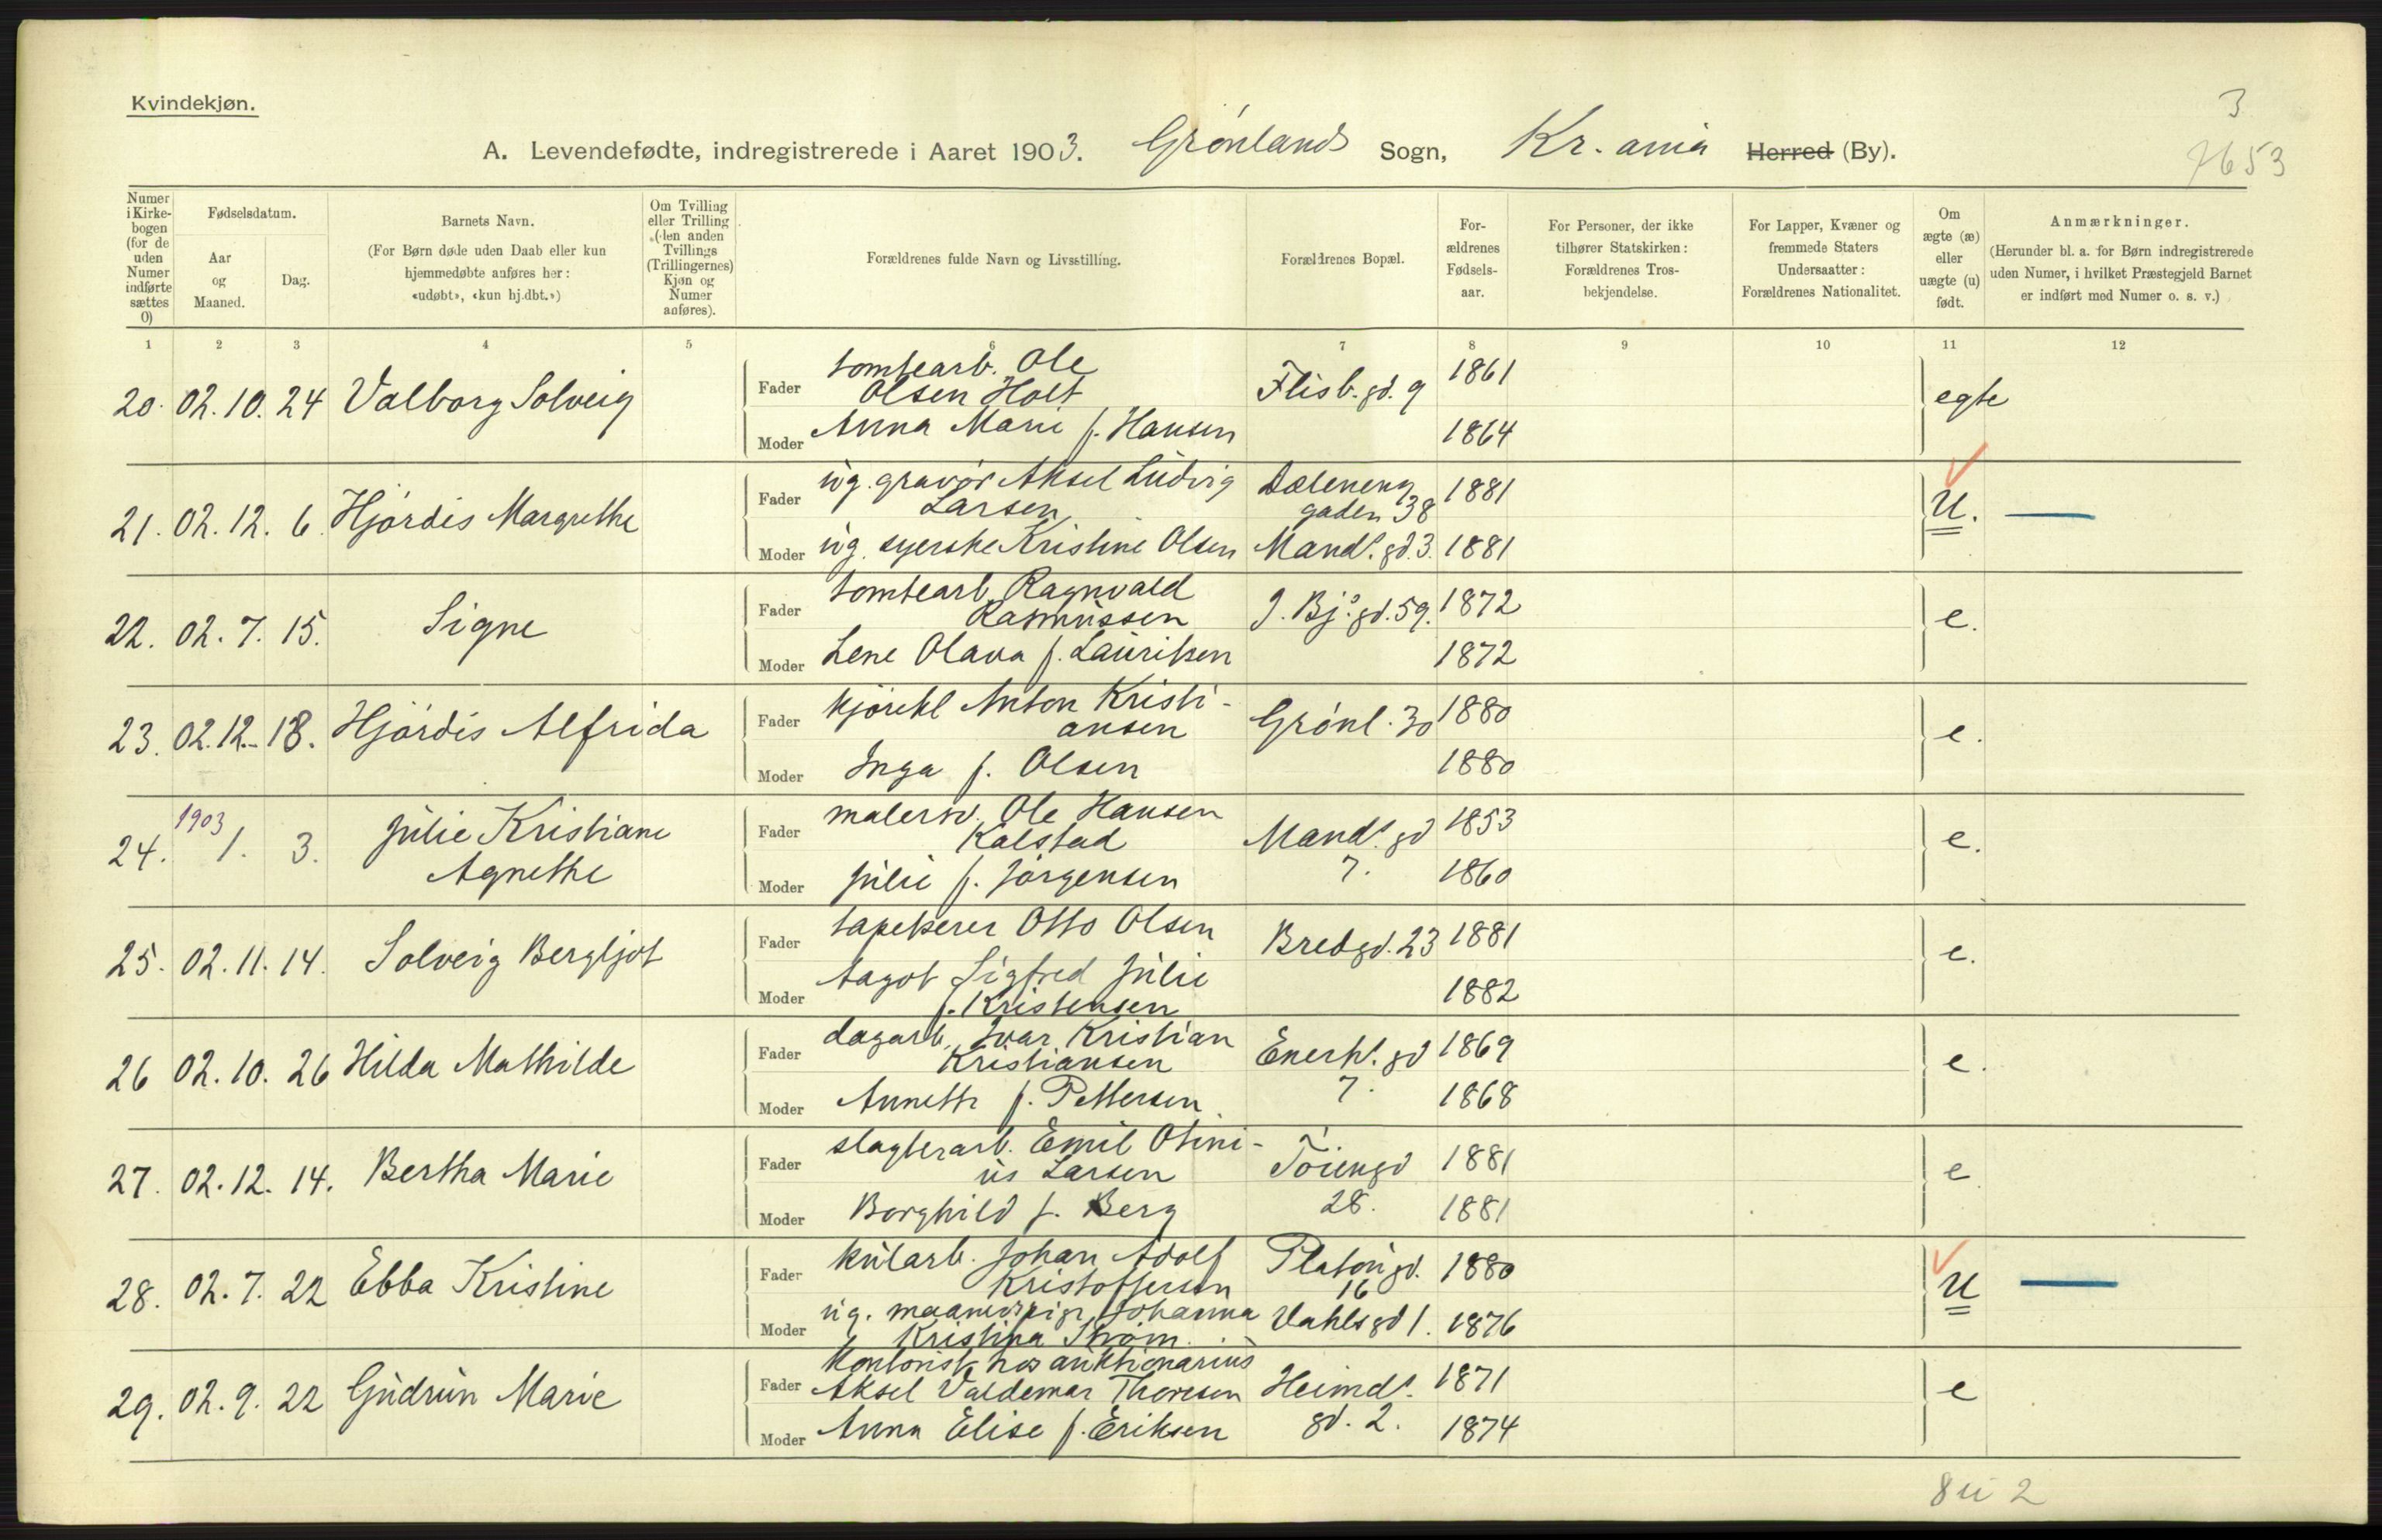 Kvindekjøn.
3
A. Levendefødte, indregistrerede i Aaret 1903. Grønlands Sogn, Kr.ania Herred (By).
7653
Numer i Kirke-bogen (for de uden Numer indførte sættes 0)
Fødselsdatum.
Aar og Maaned.
Dag.
Barnets Navn.
(For Børn døde uden Daab eller kun hjemmedøbte anføres her: «udøbt», «kun hj.dbt.»)
Om Tvilling eller Trilling (den anden Tvillings (Trillingernes) Kjøn og Numer anføres).
Forældrenes fulde Navn og Livsstilling.
Forældrenes Bopæl.
For-ældrenes Fødsels-aar.
For Personer, der ikke tilhører Statskirken: Forældrenes Tros-bekjendelse.
For Lapper, Kvæner og fremmede Staters Undersaatter: Forældrenes Nationalitet.
Om ægte (æ) eller uægte (u) født.
Anmærkninger.
(Herunder bl. a. for Børn indregistrerede uden Numer, i hvilket Præstegjeld Barnet er indført med Numer o. s. v.)
1 2 3 4 5 6 7 8 9 10 11 12
20. 02.10. 24 Valborg Solveig Fader tomtearb. Ole
Olsen Holt Flisb.gd. 9 1861 egte
Moder Anna Marie f. Hansen 1864
21. 02.12. 6. Hjórdis Margrethe Fader ug. gravør Aksel Ludvig
Larsen Dælenenggaden 38 1881 u.
Moder ug. syerske Kristine Olsen Mandl.gd.3. 1881
22. 02.7. 15. Signe Fader tomtearb. Ragnvald
Rasmussen J. Bj.s gd. 59. 1872 e.
Moder Lene Olava f. Lauritsen 1872
23. 02.12. 18. Hjórdis Alfrida Fader kjørekl Anton Kristi-
ansen Grønl. 30 1880 e.
Moder Inga f. Olsen 1880
24. 1903 1. 3. Julie Kristiane
Agnethe Fader malersv. Ole Hansen
Kalstad Mandl. gd 7. 1853 e.
Moder Julie f. Jørgensen 1860
25. 02.11. 14. Solveig Bergljot Fader tapetserer Otto Olsen Bredgd. 23 1881 e.
Moder Aagot Sigfred Julie
f. Kristensen 1882
26 02.10. 26 Hilda Mathilde Fader dagarb. Ivar Kristian
Kristiansen Enerh. gd 7. 1869 e.
Moder Annette f. Pettersen 1868
27. 02.12. 14. Bertha Marie Fader slagterarb. Emil Otini-
us Larsen Tøiengd 28. 1881 e
Moder Borghild f. Berg 1881
28. 02.7. 22 Ebba Kristine Fader kularb. Johan Adolf
Kristoffersen Platougd. 16 1880 u
Moder ug. maanedspige Johanna
Kristina Strøm Vahlsgd 1. 1876
29. 02.9. 22 Gudrun Marie Fader Kontorist hos auktionarius
Aksel Valdemar Thoresen Heimdl. gd. 2. 1871 e
Moder Anna Elise f. Eriksen 1874
8 u 2